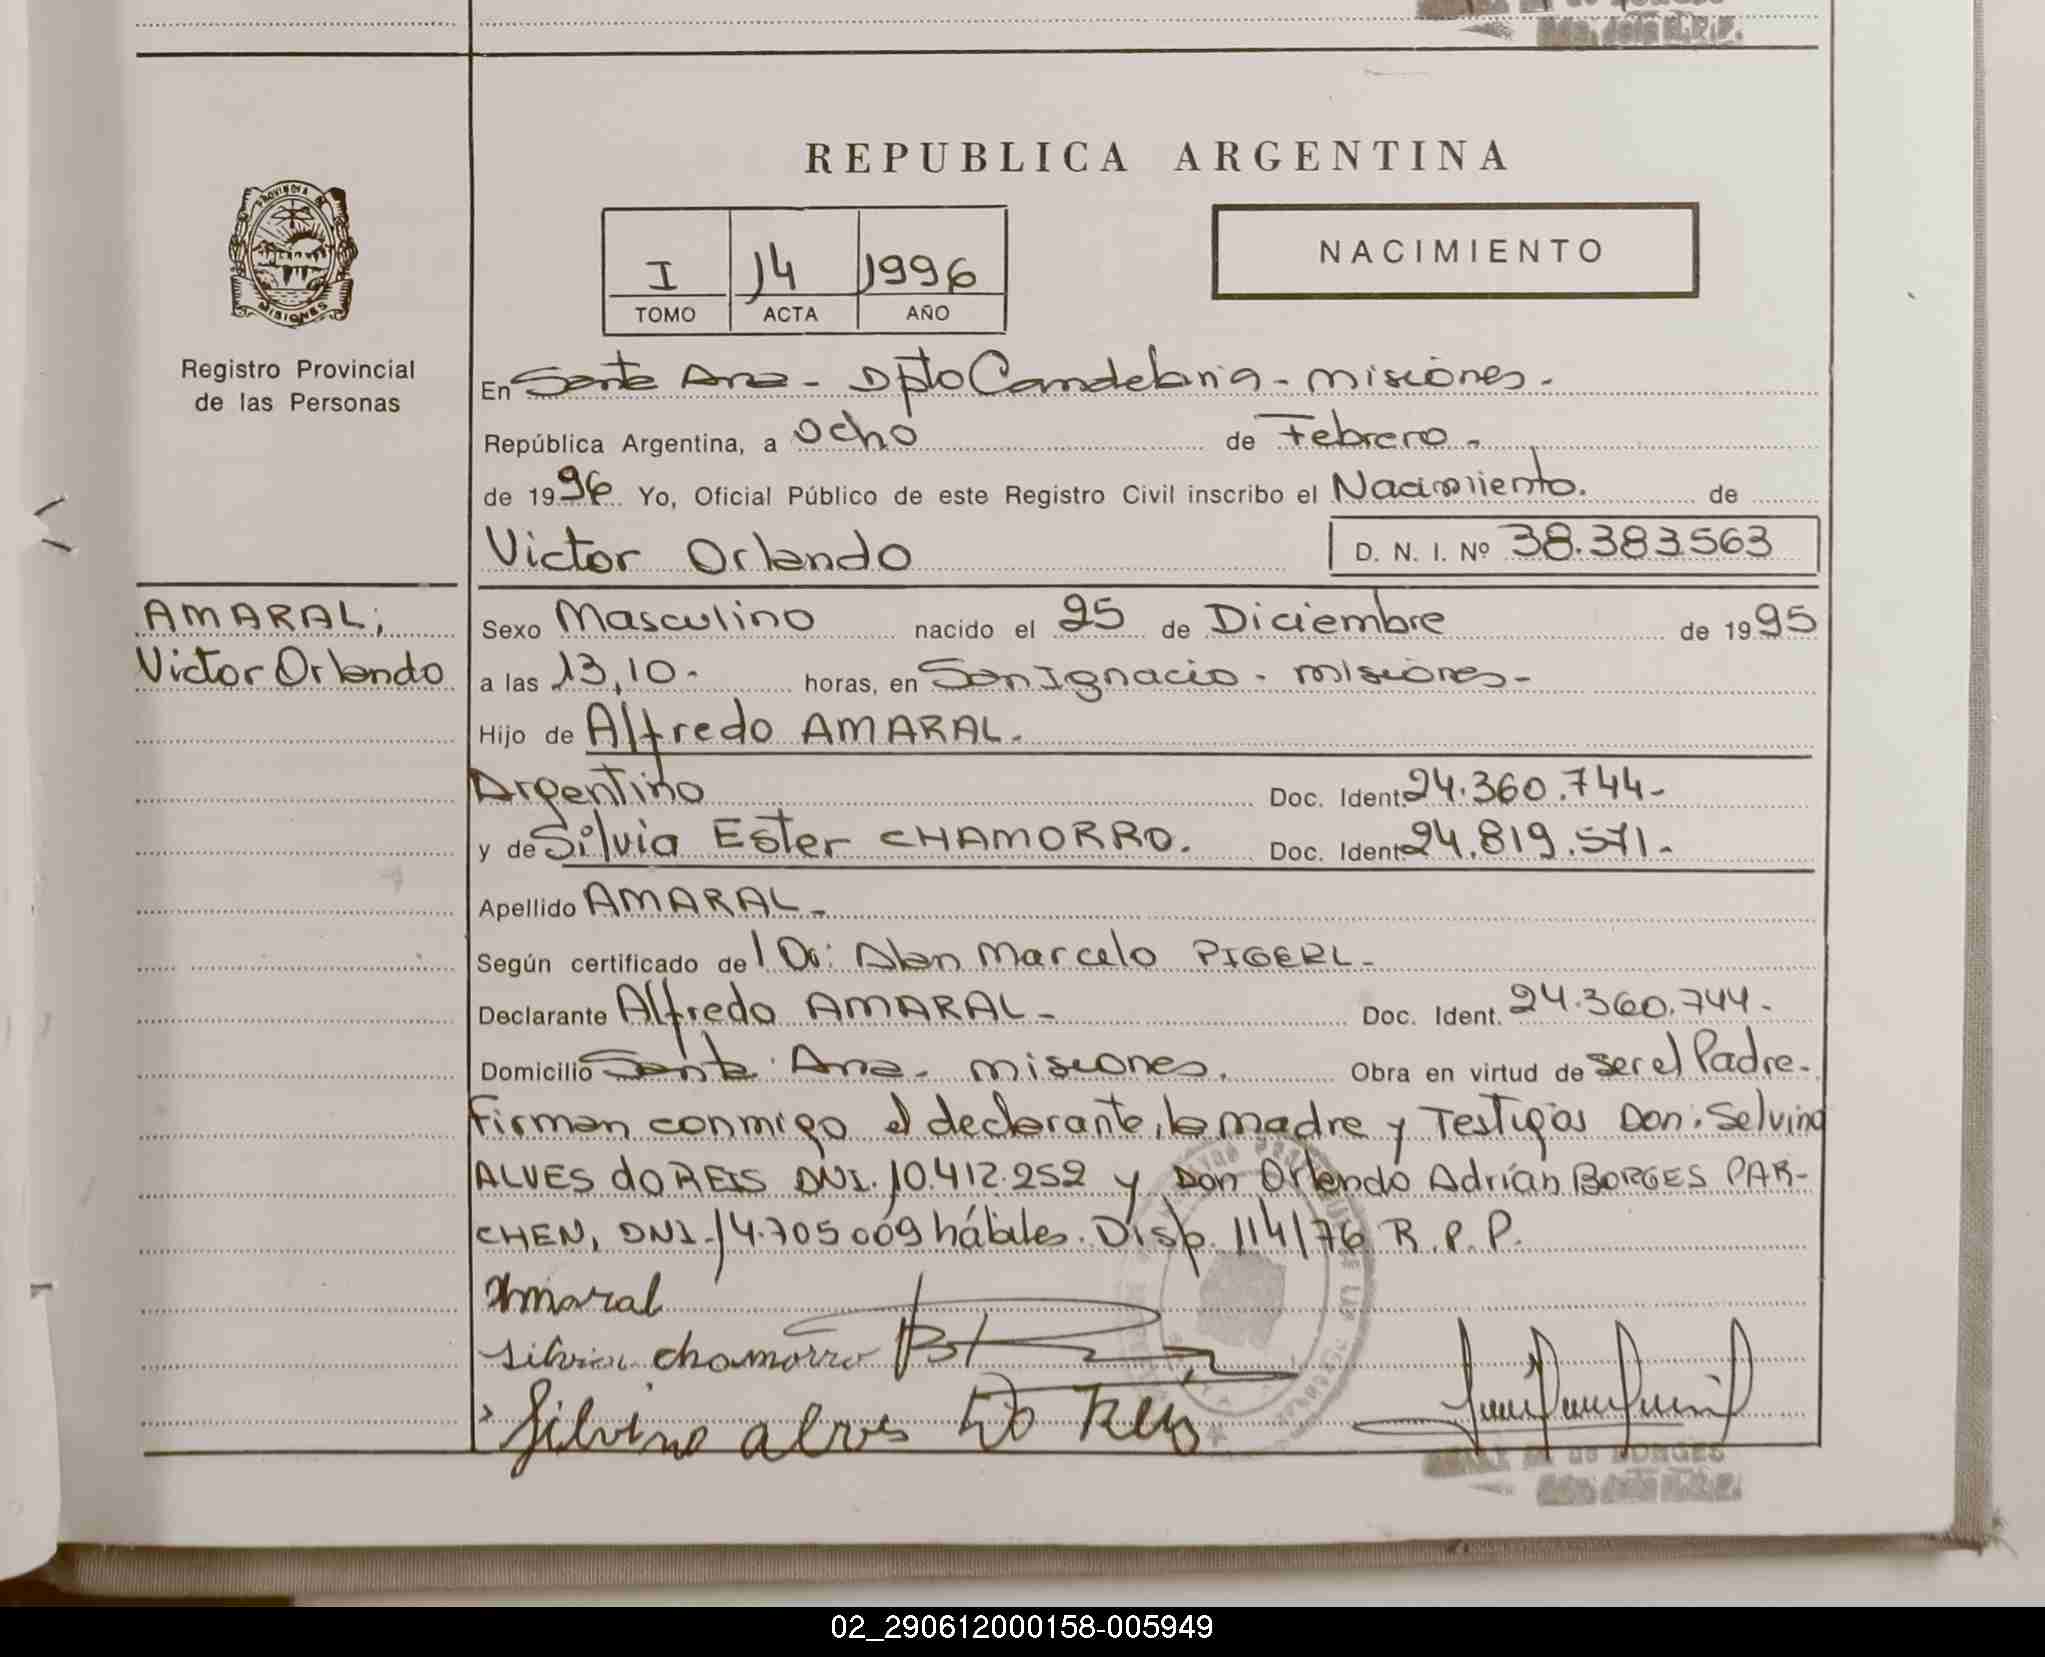 Jefe R.P.P.
REPUBLICA ARGENTINA
NACIMIENTO
I 14 1996
TOMO ACTA AÑO
PROVINCIA DE
MISIONES
Registro Provincial
de las Personas
En Santa Ana - Dpto Candelaria - misiones.
República Argentina, a ocho de Febrero.
de 1996 Yo, Oficial Público de este Registro Civil inscribo el Nacimiento. de
Victor Orlando D. N. I. Nº 38.383563
AMARAL;
Victor Orlando
Sexo Masculino nacido el 25 de Diciembre de 1995
a las 13,10. horas, en San Ignacio - misiones -
Hijo de Alfredo AMARAL.
Argentino Doc. Ident. 24.360.744-
y de Silvia Ester CHAMORRO. Doc. Ident 24.819.571-
Apellido AMARAL-
Según certificado del Dr: Alan Marcelo PIGERL-
Declarante Alfredo AMARAL- Doc. Ident. 24.360.744-
Domicilio Santa Ana - misiones. Obra en virtud de ser el Padre.
Firman conmigo el declarante, la madre y Testigos Don: Selvino
ALVES do REIS DNI. 10.412.252 y Don Orlando Adrían BORGES PAR-
CHEN, DNI. 14.705009 hábiles. Disp. 114/76 R.P.P.
Amaral
silvia chamorro
Silvino alves Do Reis
de BORGES
02_290612000158-005949